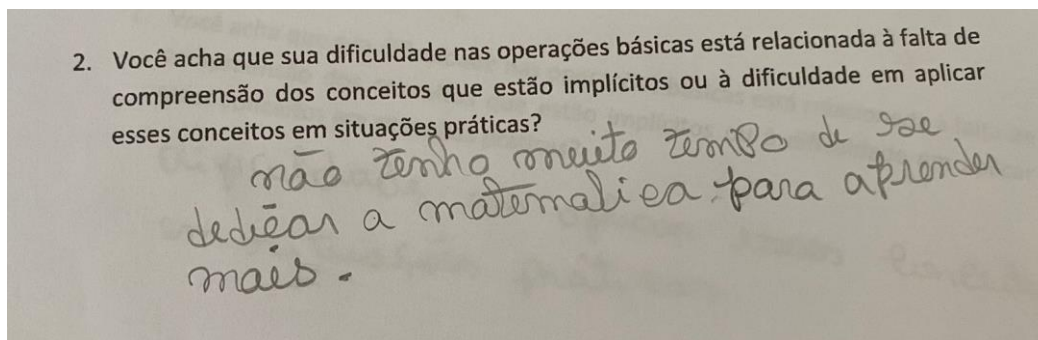 2. Você acha que sua dificuldade nas operações básicas está relacionada à falta de
compreensão dos conceitos que estão implícitos ou à dificuldade em aplicar
esses conceitos em situações práticas?
não tenho muito tempo de se
dedicar a matematica para aprender
mais.